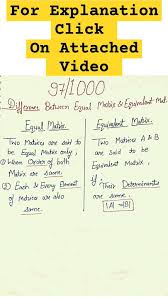 For Explanation
Click
On Attached
Video
97/1000
Difference Between Equal Matrix & Equivalent Mat
Equal Matrix
Two Matrices are said to
be Equal Matrix only,
① When Order of both
Matrix are same.
② Each & Every Element
of Matrices are also
same.
Equivalent Matrix.
Two Matrices A & B
are said to be
Equivalent Matrix,
if,
Their Determinants
are same.
|A| = |B|